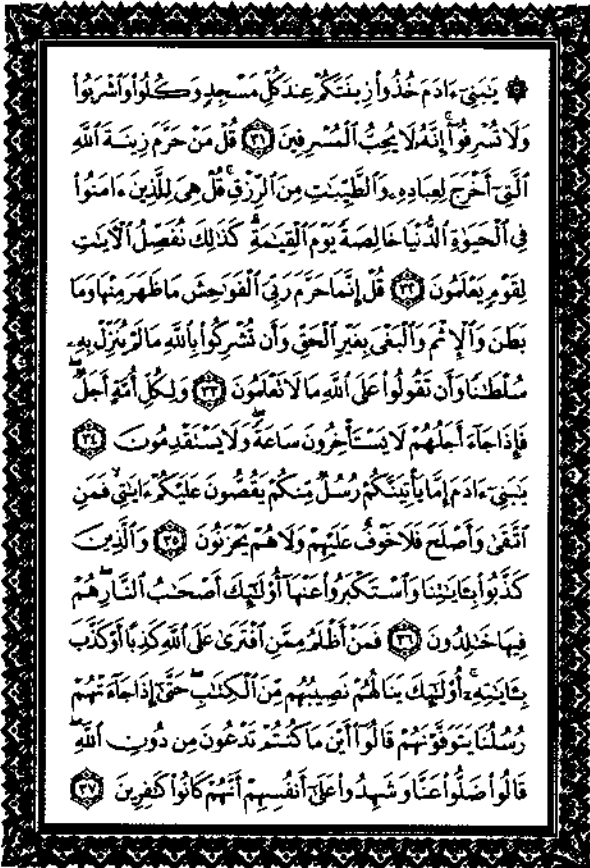 ۞ يَـٰبَنِىٓ ءَادَمَ خُذُوا۟ زِينَتَكُمْ عِندَ كُلِّ مَسْجِدٍ وَكُلُوا۟ وَٱشْرَبُوا۟
وَلَا تُسْرِفُوٓا۟ ۚ إِنَّهُۥ لَا يُحِبُّ ٱلْمُسْرِفِينَ ٣١ قُلْ مَنْ حَرَّمَ زِينَةَ ٱللَّهِ
ٱلَّتِىٓ أَخْرَجَ لِعِبَادِهِۦ وَٱلطَّيِّبَـٰتِ مِنَ ٱلرِّزْقِ ۚ قُلْ هِىَ لِلَّذِينَ ءَامَنُوا۟
فِى ٱلْحَيَوٰةِ ٱلدُّنْيَا خَالِصَةً يَوْمَ ٱلْقِيَـٰمَةِ ۗ كَذَٰلِكَ نُفَصِّلُ ٱلْـَٔايَـٰتِ
لِقَوْمٍ يَعْلَمُونَ ٣٢ قُلْ إِنَّمَا حَرَّمَ رَبِّىَ ٱلْفَوَٰحِشَ مَا ظَهَرَ مِنْهَا وَمَا
بَطَنَ وَٱلْإِثْمَ وَٱلْبَغْىَ بِغَيْرِ ٱلْحَقِّ وَأَن تُشْرِكُوا۟ بِٱللَّهِ مَا لَمْ يُنَزِّلْ بِهِۦ
سُلْطَـٰنًا وَأَن تَقُولُوا۟ عَلَى ٱللَّهِ مَا لَا تَعْلَمُونَ ٣٣ وَلِكُلِّ أُمَّةٍ أَجَلٌ ۖ
فَإِذَا جَآءَ أَجَلُهُمْ لَا يَسْتَأْخِرُونَ سَاعَةً ۖ وَلَا يَسْتَقْدِمُونَ ٣٤
يَـٰبَنِىٓ ءَادَمَ إِمَّا يَأْتِيَنَّكُمْ رُسُلٌ مِّنكُمْ يَقُصُّونَ عَلَيْكُمْ ءَايَـٰتِى ۙ فَمَنِ
ٱتَّقَىٰ وَأَصْلَحَ فَلَا خَوْفٌ عَلَيْهِمْ وَلَا هُمْ يَحْزَنُونَ ٣٥ وَٱلَّذِينَ
كَذَّبُوا۟ بِـَٔايَـٰتِنَا وَٱسْتَكْبَرُوا۟ عَنْهَآ أُو۟لَـٰٓئِكَ أَصْحَـٰبُ ٱلنَّارِ ۖ هُمْ
فِيهَا خَـٰلِدُونَ ٣٦ فَمَنْ أَظْلَمُ مِمَّنِ ٱفْتَرَىٰ عَلَى ٱللَّهِ كَذِبًا أَوْ كَذَّبَ
بِـَٔايَـٰتِهِۦٓ ۚ أُو۟لَـٰٓئِكَ يَنَالُهُمْ نَصِيبُهُم مِّنَ ٱلْكِتَـٰبِ ۖ حَتَّىٰٓ إِذَا جَآءَتْهُمْ
رُسُلُنَا يَتَوَفَّوْنَهُمْ قَالُوٓا۟ أَيْنَ مَا كُنتُمْ تَدْعُونَ مِن دُونِ ٱللَّهِ ۖ
قَالُوا۟ ضَلُّوا۟ عَنَّا وَشَهِدُوا۟ عَلَىٰٓ أَنفُسِهِمْ أَنَّهُمْ كَانُوا۟ كَـٰفِرِينَ ٣٧